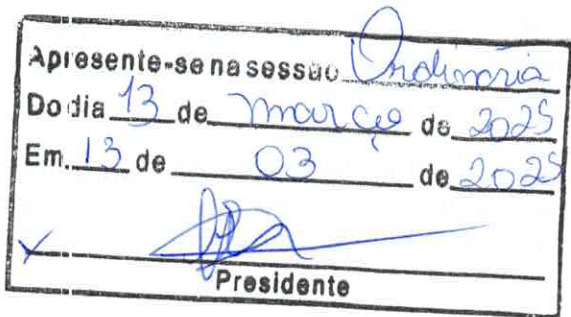 Apresente-se na sessão Ordinária
Do dia 13 de março de 2025
Em. 13 de 03 de 2025
Presidente